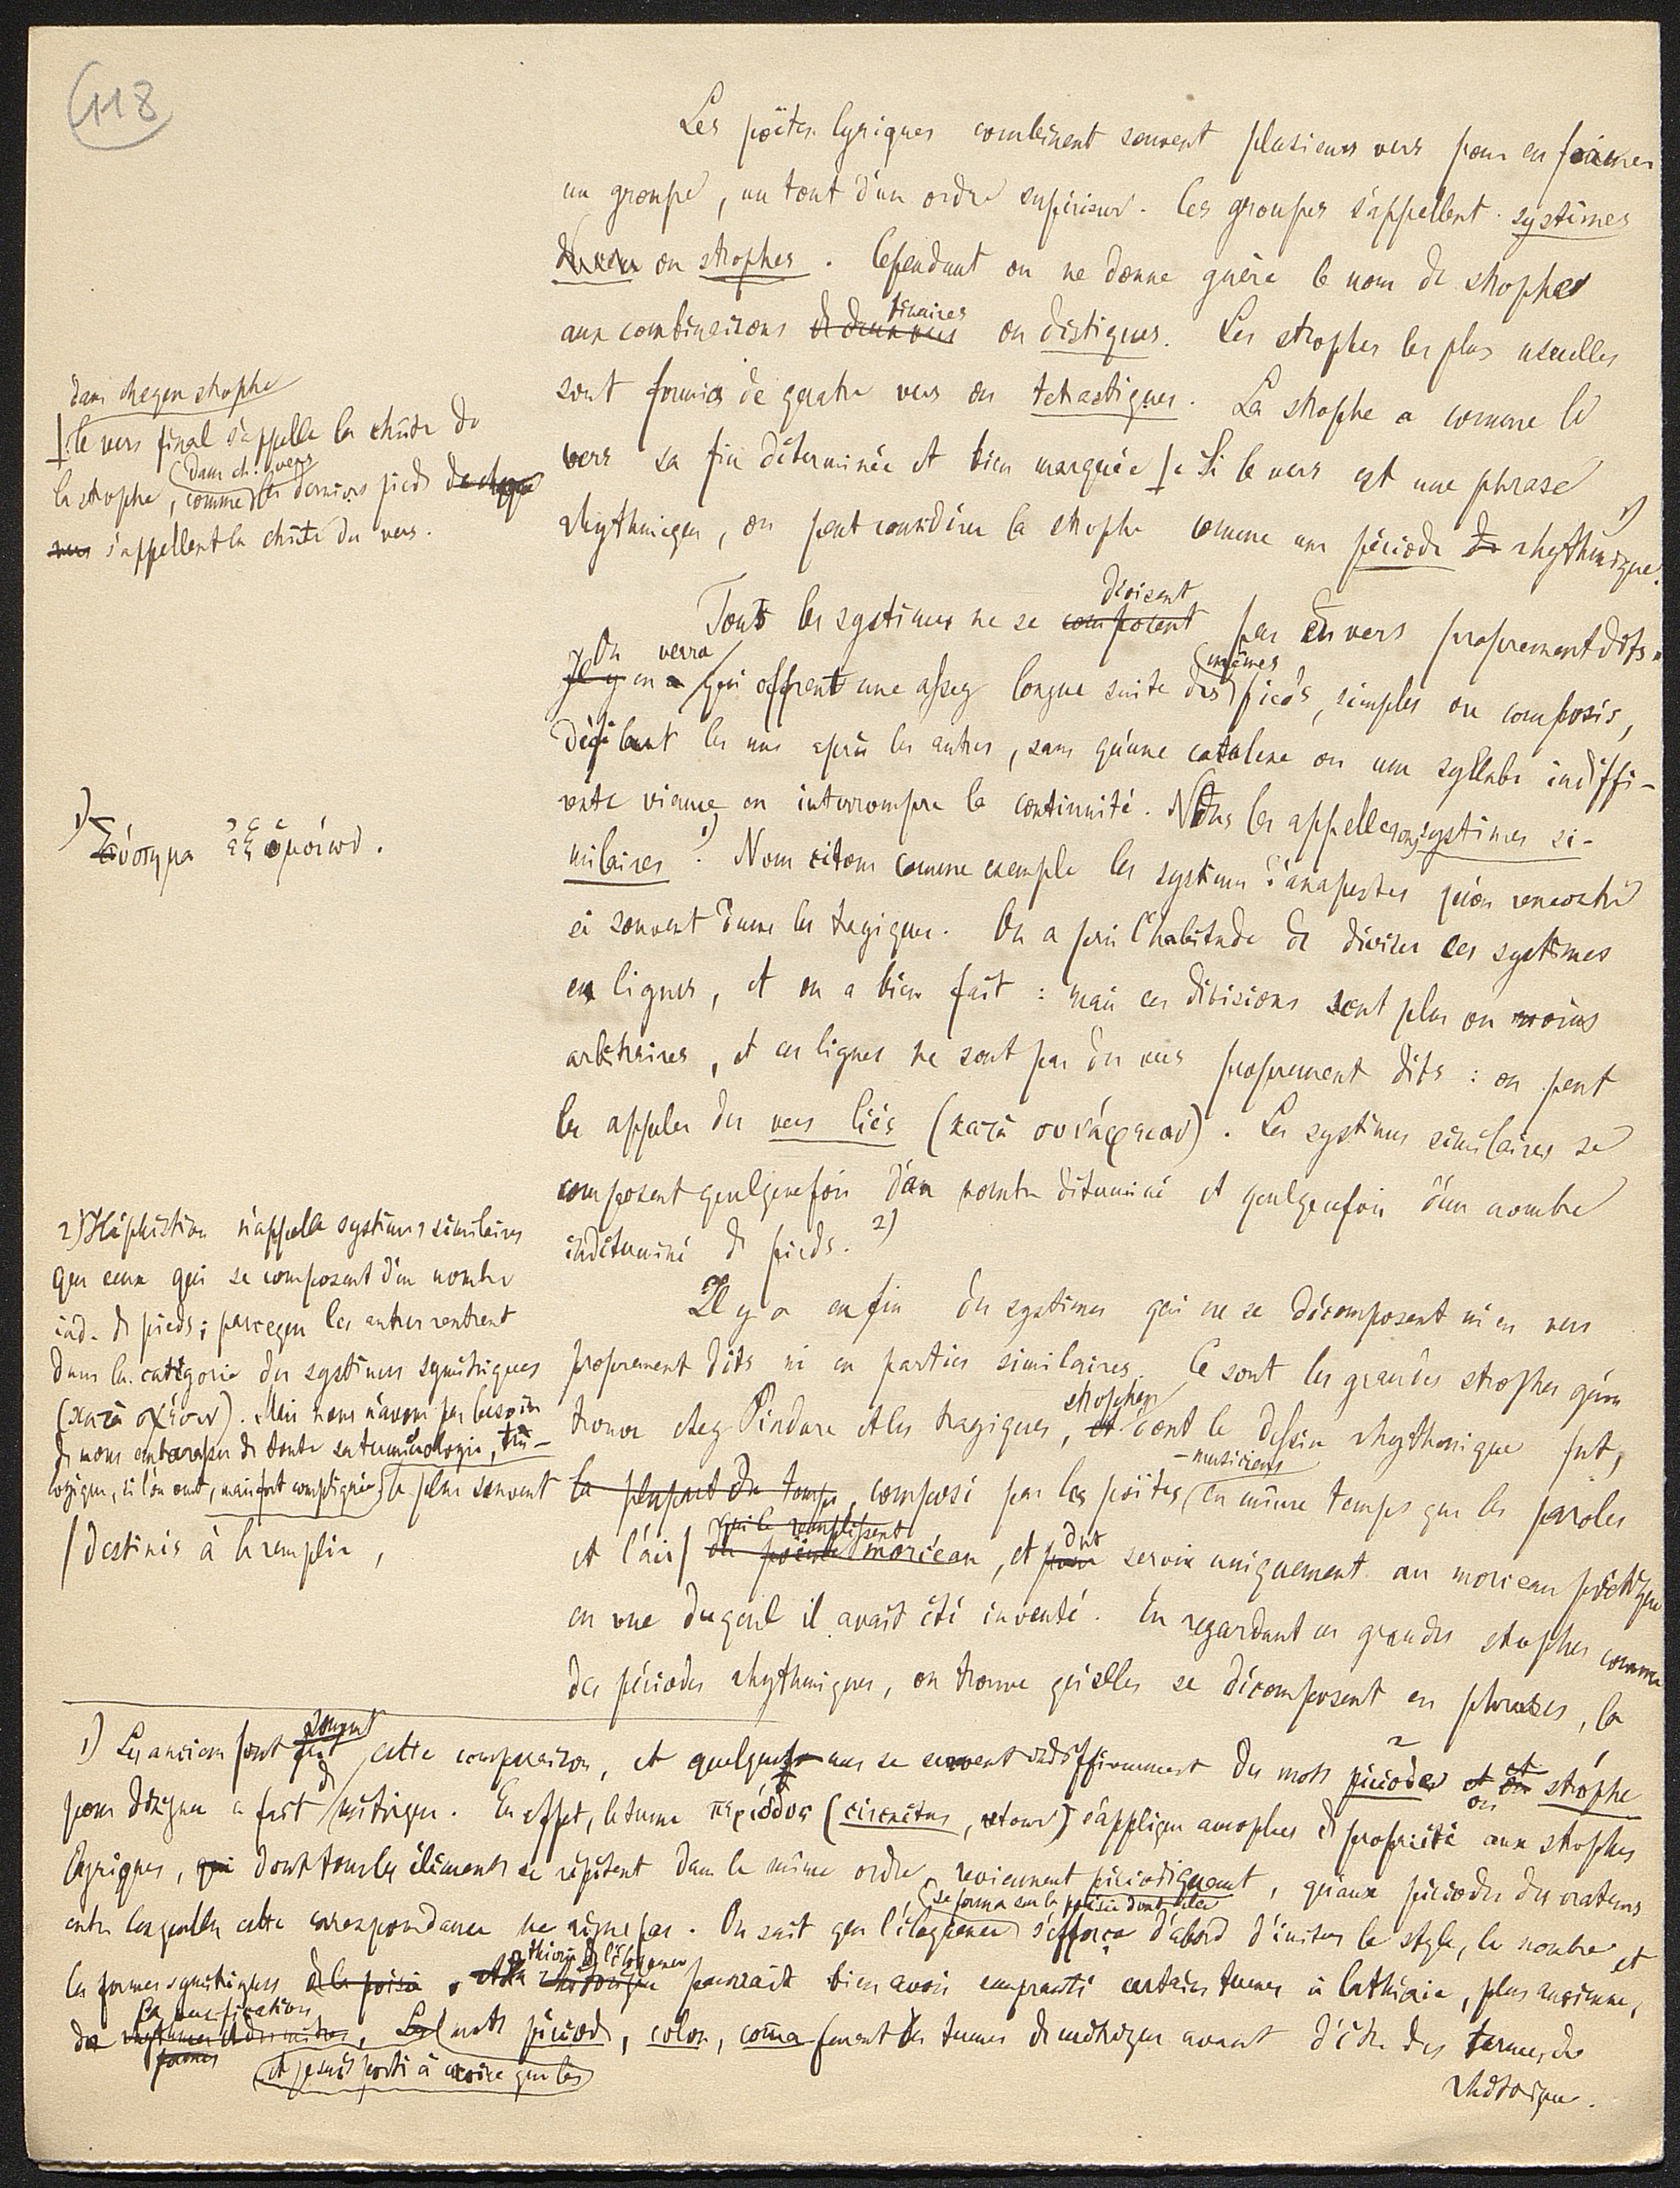 118
Les poëtes lyriques combinent souvent plusieurs vers pour en former
un groupe, un tout d'un ordre supérieur. Ces groupes s'appellent systèmes
ou strophes. Cependant on ne donne guère le nom de strophes
aux combinaisons de deux vers binaires ou distiques. Les strophes les plus usuelles
sont formées de quatre vers ou tetrastiques. La strophe a comme le
vers sa fin déterminée et bien marquée. Si le vers est une phrase
rhythmique, on peut considérer la strophe comme une période de rhythmique. 1)
dans chaque strophe
le vers final s'appelle la chûte de
la strophe, comme dans ch. vers les derniers pieds de chaque
vers s'appellent la chûte du vers.
Tous les systèmes ne se composent divisent pas en vers proprement dits.
Il y en a On en verra qui offrent une assez longue suite des mêmes pieds, simples ou composés,
défilant les uns après les autres, sans qu'une catalexe ou une syllabe indiffé-
rente vienne en interrompre la continuité. Nous les appellerons systèmes si-
milaires 1). Nous citons comme exemple les systèmes d'anapestes qu'on rencontre
si souvent dans les tragiques. On a pris l'habitude de diviser ces systèmes
en lignes, et on a bien fait : mais ces divisions sont plus ou moins
arbitraires, et ces lignes ne sont pas des vers proprement dits : on peut
les appeler des vers liés (κατὰ συνάφειαν). Les systèmes similaires se
composent quelquefois d'un nombre déterminé et quelquefois d'un nombre
indéterminé de pieds. 2)
1) Σύστημα ἐξ ὁμοίων.
2) Héphestion n'appelle systèmes similaires
que ceux qui se composent d'un nombre
ind. de pieds; parceque les autres rentrent
dans la catégorie des systèmes symétriques
(κατὰ σχέσιν). Mais nous n'avons pas besoin
de nous embarasser de toute sa terminologie, très-
logique, si l'on veut, mais fort compliquée.
Il y a enfin des systèmes qui ne se décomposent ni en vers
proprement dits ni en parties similaires. Ce sont les grandes strophes qu'on
trouve chez Pindare et les tragiques, et strophes dont le dessin rhythmique fut,
le plus souvent la plupart du temps, composé par les poëtes-musiciens en même temps que les paroles
et l'air du poëme qui le remplissent morceau, et pour dut servir uniquement au morceau poétique
destinés à le remplir,
en vue duquel il avait été inventé. En regardant ces grandes strophes comme
des périodes rhythmiques, on trouve qu'elles se décomposent en phrases, la
1) Les anciens font souvent cette comparaison, et quelques uns se servent indifféremment des mots période et ou strophe
pour désigner ce fait métrique. En effet, le terme περίοδος (circuitus, retour) s'applique avec plus de propriété aux strophes
lyriques, qui dont tous les éléments se répètent dans le même ordre, ou reviennent périodiquement, qu'aux périodes des orateurs
entre lesquelles cette correspondance ne règne pas. On sait que l'éloquence se forma sur la poésie dont elle s'efforça d'abord d'imiter le style, le nombre et
les formes symétriques de la poésie. Et la rhétorique théorie de l'éloquence pourrait bien avoir emprunté certains termes à la théorie, plus ancienne,
de la versification, et je suis porté à croire que les Les mots période, colon, comma furent des termes de métrique avant d'être des termes de
rhétorique.